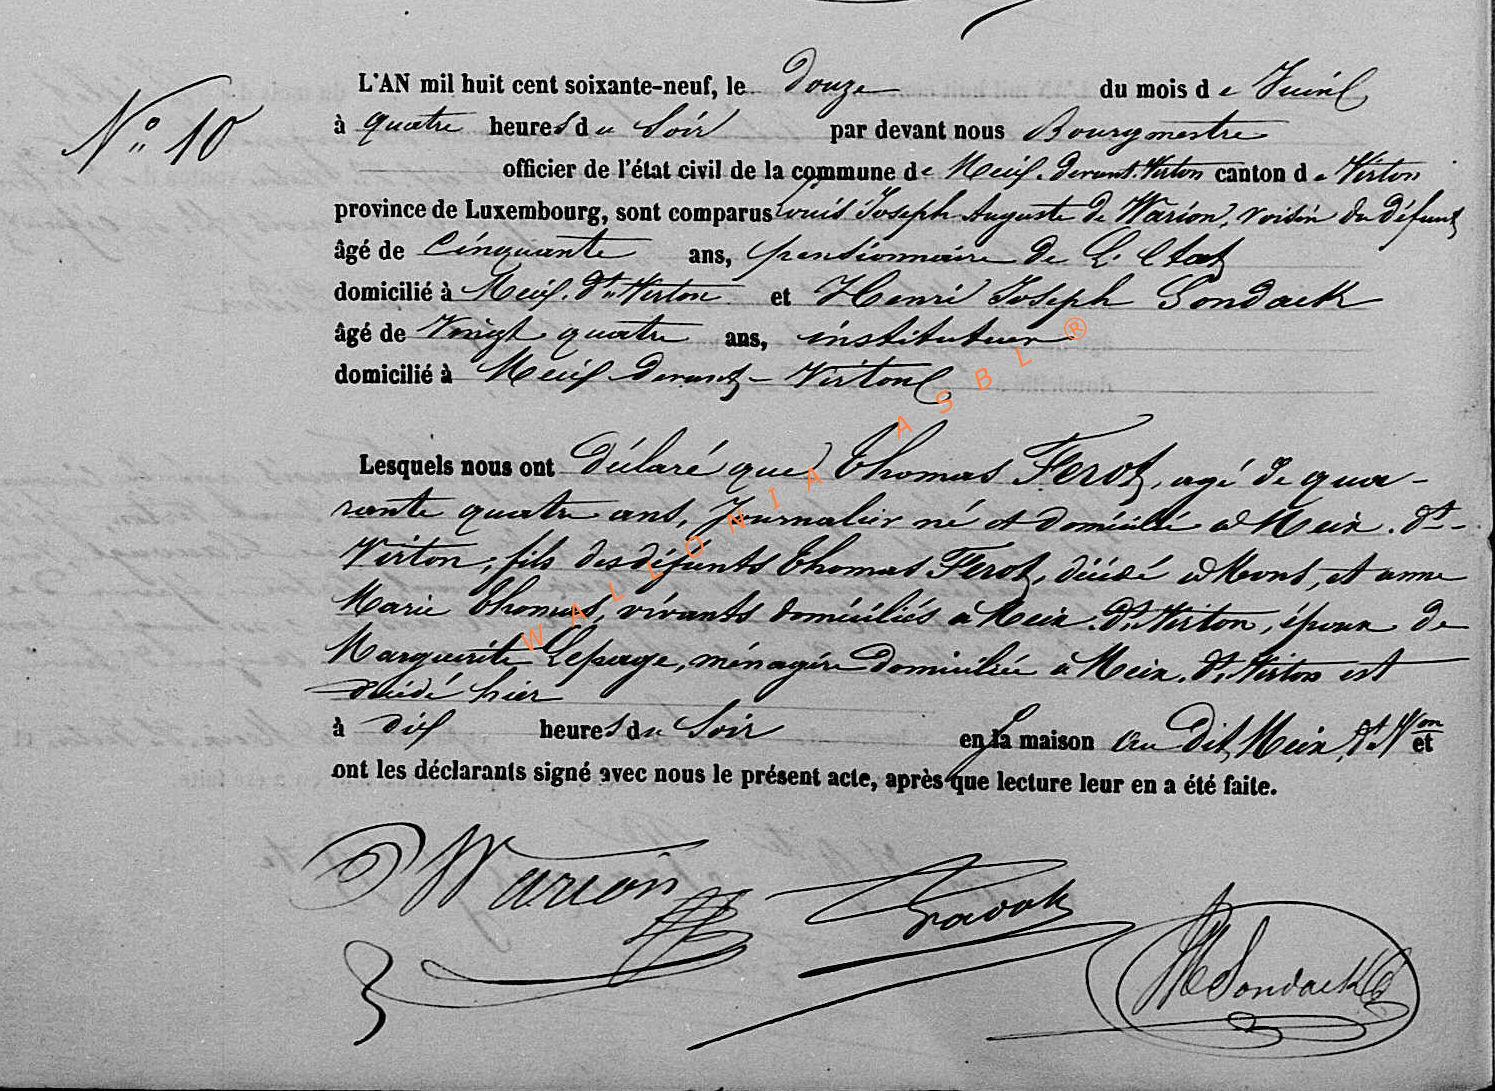 N° 10
L'AN mil huit cent soixante-neuf, le douze du mois de Juin
à quatre heures du soir par devant nous Bourgmestre
officier de l'état civil de la commune de Meix-devant-Virton canton de Virton
province de Luxembourg, sont comparus Louis Joseph Auguste de Warion, voisin du défunt
âgé de cinquante ans, pensionnaire de L'Etat
domicilié à Meix-dt-Virton et Henri Joseph Sondack
âgé de Vingt quatre ans, instituteur
domicilié à Meix-devant-Virton
Lesquels nous ont déclaré que Thomas Ferot, agé de qua-
rante quatre ans, Journalier né et domicilié à Meix-dt-
Virton, fils des défunts Thomas Ferot, décédé à Mons, et anne
Marie Thomas, vivants domiciliés à Meix-dt-Virton, époux de
Marguerite Lepage, ménagère domiciliée à Meix-dt-Virton est
décédé hier
à dix heures du soir en sa maison au dit Meix-dt-Von et
ont les déclarants signé avec nous le présent acte, après que lecture leur en a été faite.
Warion
HSondack
WALLONIA ASBL ®